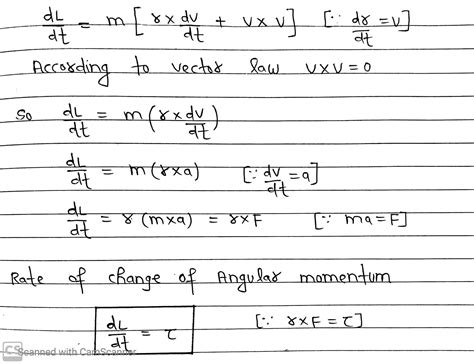 dL/dt = m [ r × dv/dt + v × v ] [∵ dr/dt = v]
According to vector law v×v = 0
So dL/dt = m (r × dv/dt)
dL/dt = m (r×a) [∵ dv/dt = a]
dL/dt = r (m×a) = r×F [∵ ma = F]
Rate of change of Angular momentum
dL/dt = τ [∵ r×F = τ]
CS Scanned with CamScanner